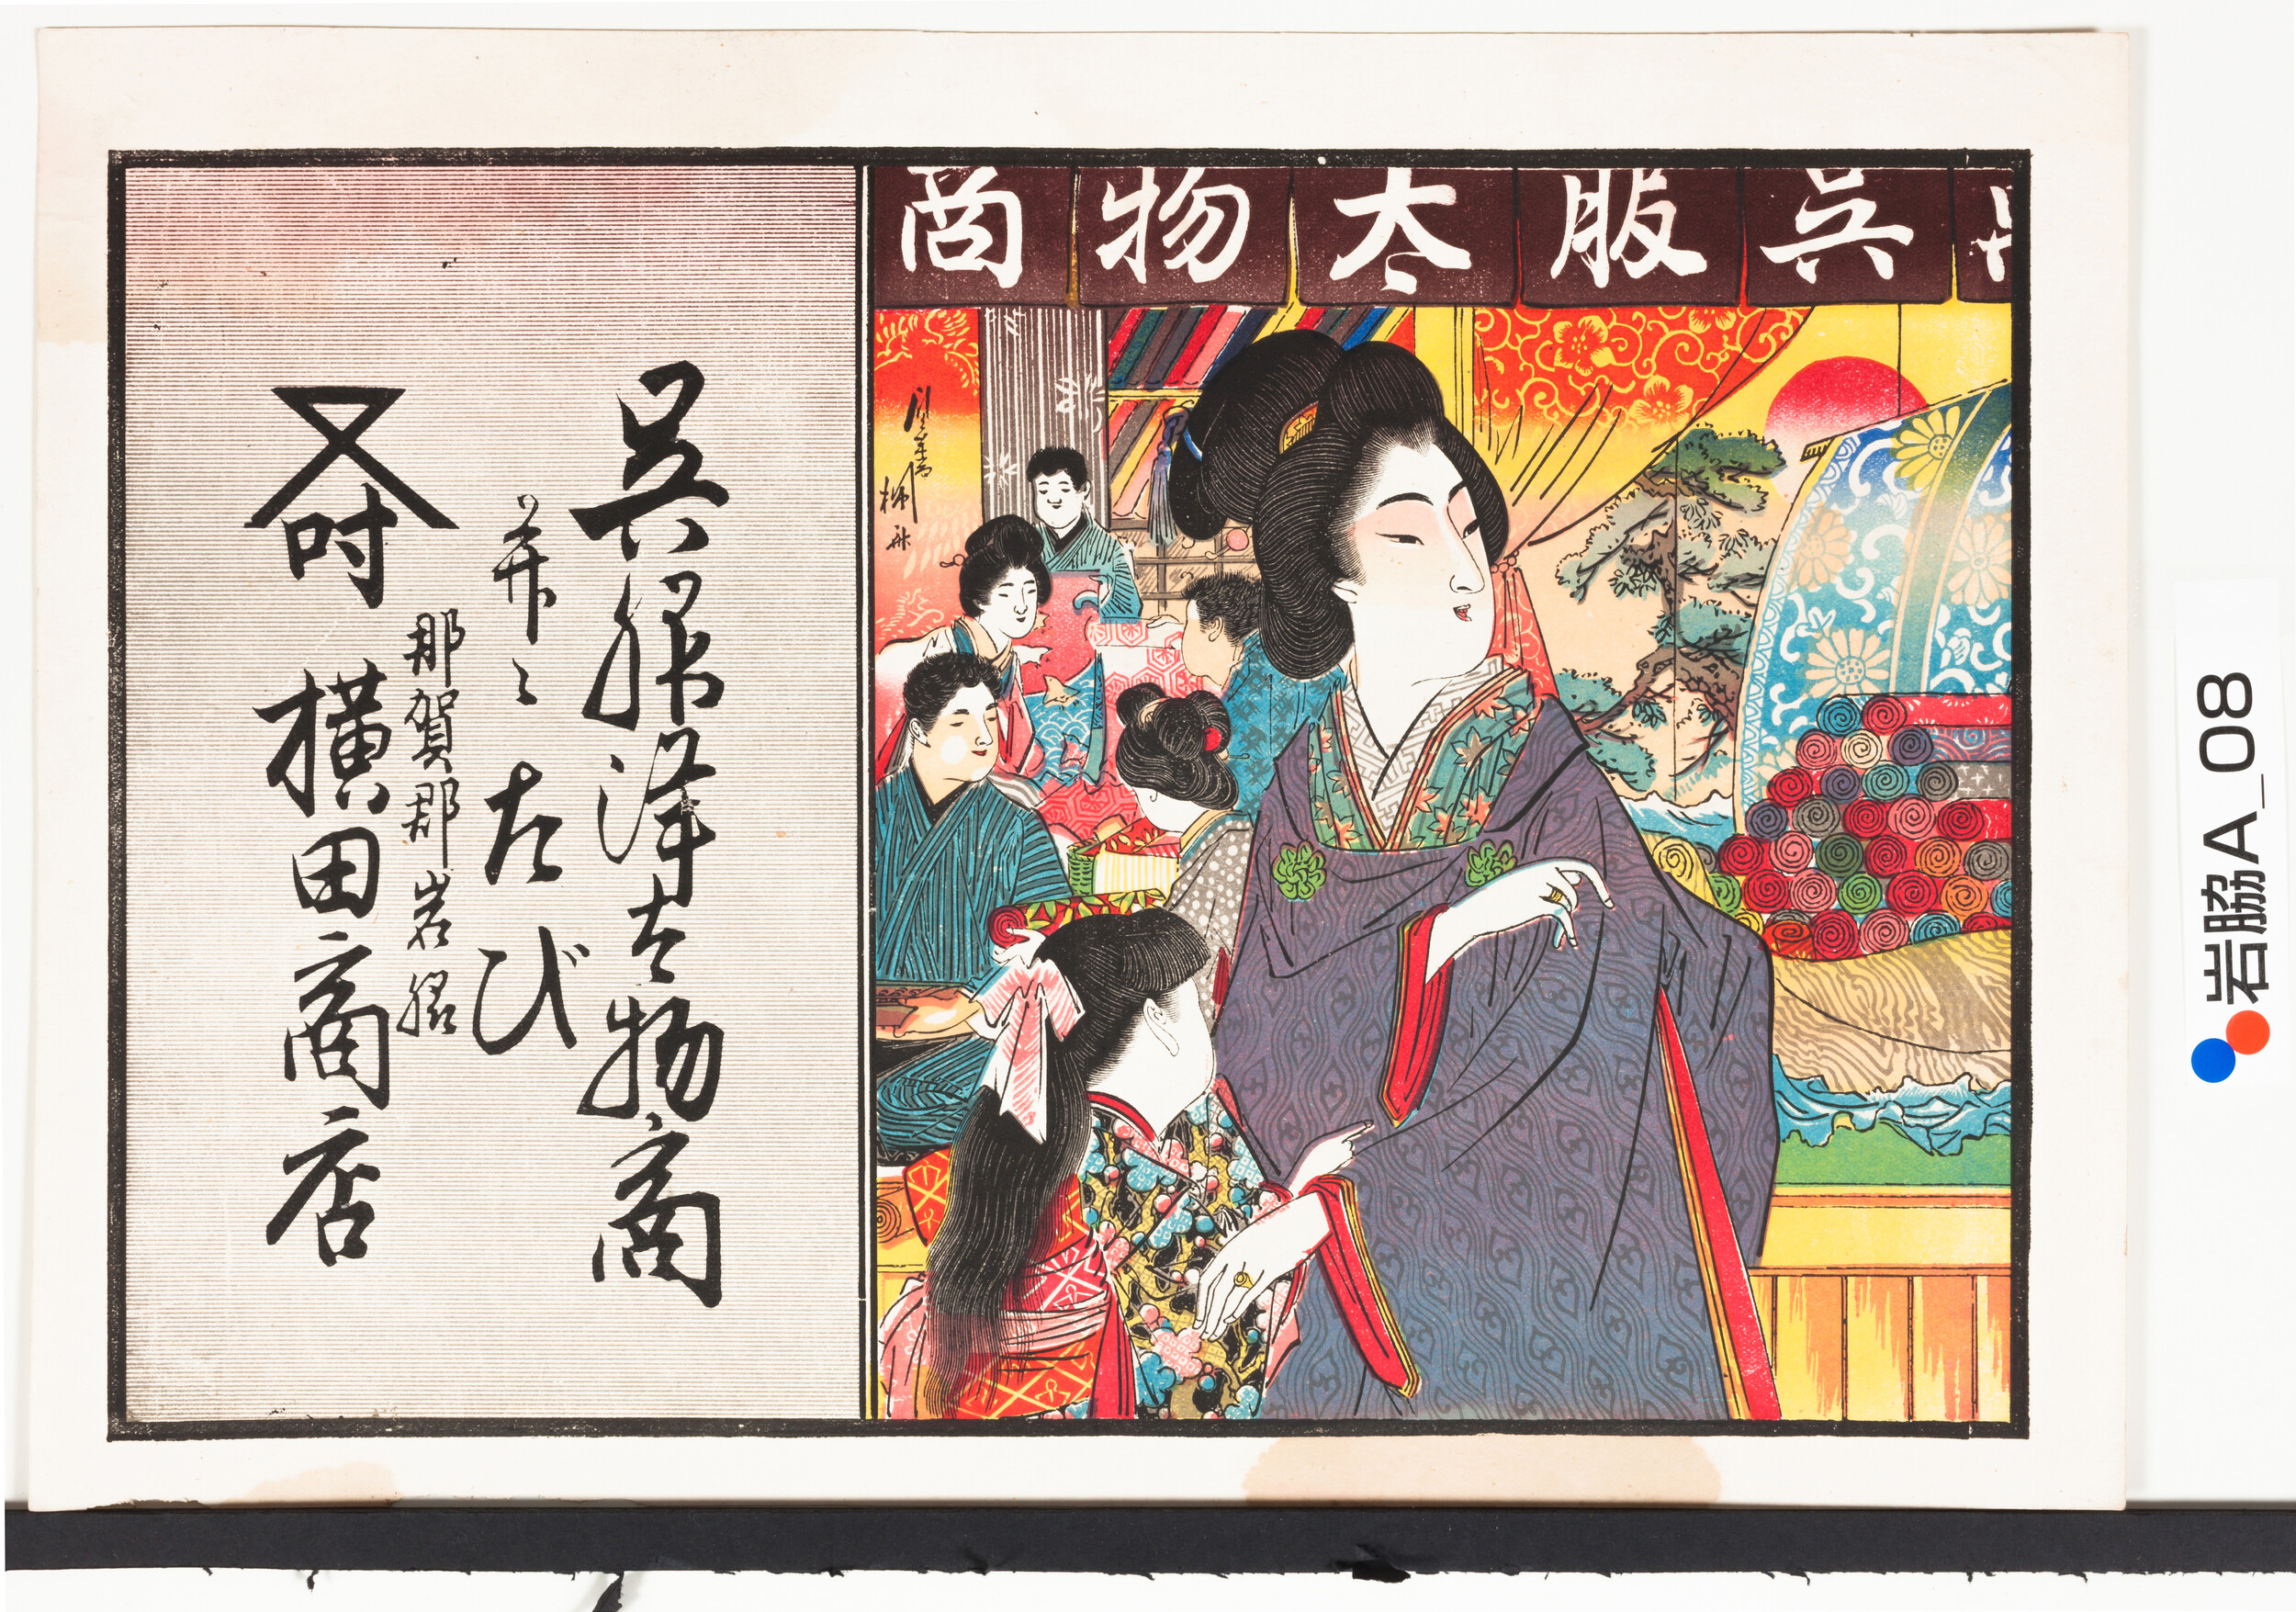 呉服太物商
呉服洋太物商
并ニたび
那賀郡岩脇
横田商店
岩脇A_08